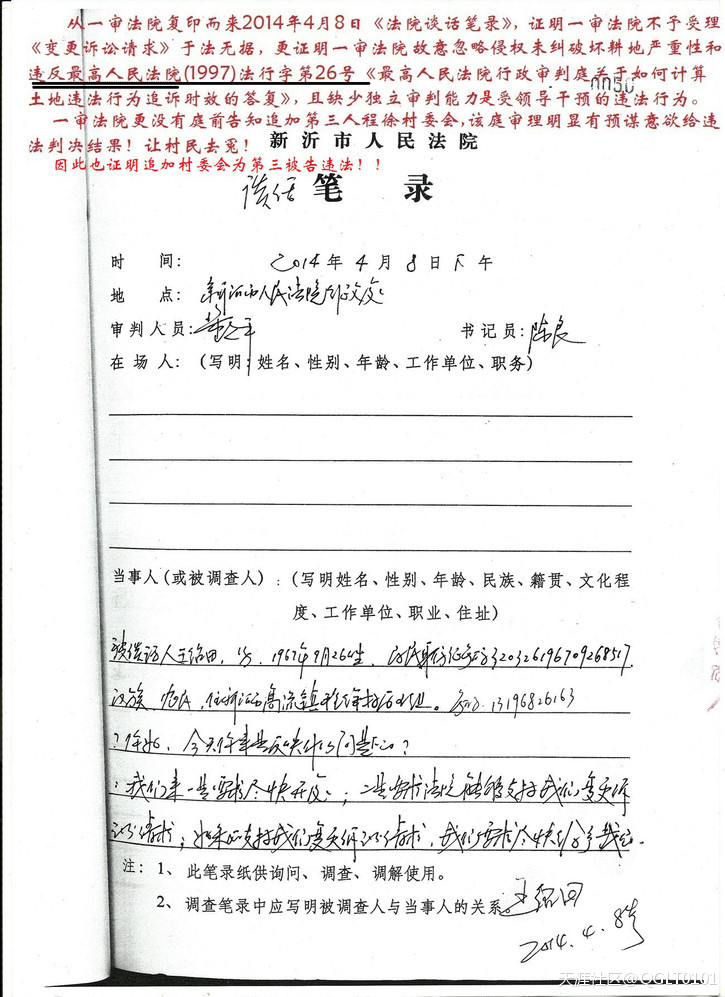 从一审法院复印而来2014年4月8日《法院谈话笔录》，证明一审法院不予受理
《变更诉讼请求》于法无据，更证明一审法院故意忽略侵权未纠破坏耕地严重性和
违反最高人民法院(1997)法行字第26号《最高人民法院行政审判庭关于如何计算
土地违法行为追诉时效的答复》，且缺少独立审判能力是受领导干预的违法行为。
一审法院更没有庭前告知追加第三人程徐村委会，该庭审理明显有预谋意欲给违
法判决结果！让村民去冤！
新沂市人民法院
因此也证明追加村委会为第三被告违法！！
谈话 笔 录
时 间： 2014年4月8日下午
地 点： 新沂市人民法院行政庭
审判人员：
书记员：陈良
在 场 人：（写明：姓名、性别、年龄、工作单位、职务）
当事人（或被调查人）：（写明姓名、性别、年龄、民族、籍贯、文化程
度、工作单位、职业、住址）
1967年9月26日生，320326196709268517
汉族，农民，住新沂市高流镇 13196826163
？你好，今天你来是反映什么问题的？
：我们来一是要求尽快开庭；二是要求法院能够支持我们变更诉
讼请求；如果不支持我们变更诉讼请求，我们要求尽快
注：1、 此笔录纸供询问、调查、调解使用。
2、调查笔录中应写明被调查人与当事人的关系。
2014.4.8号
天涯社区@QGLT0101